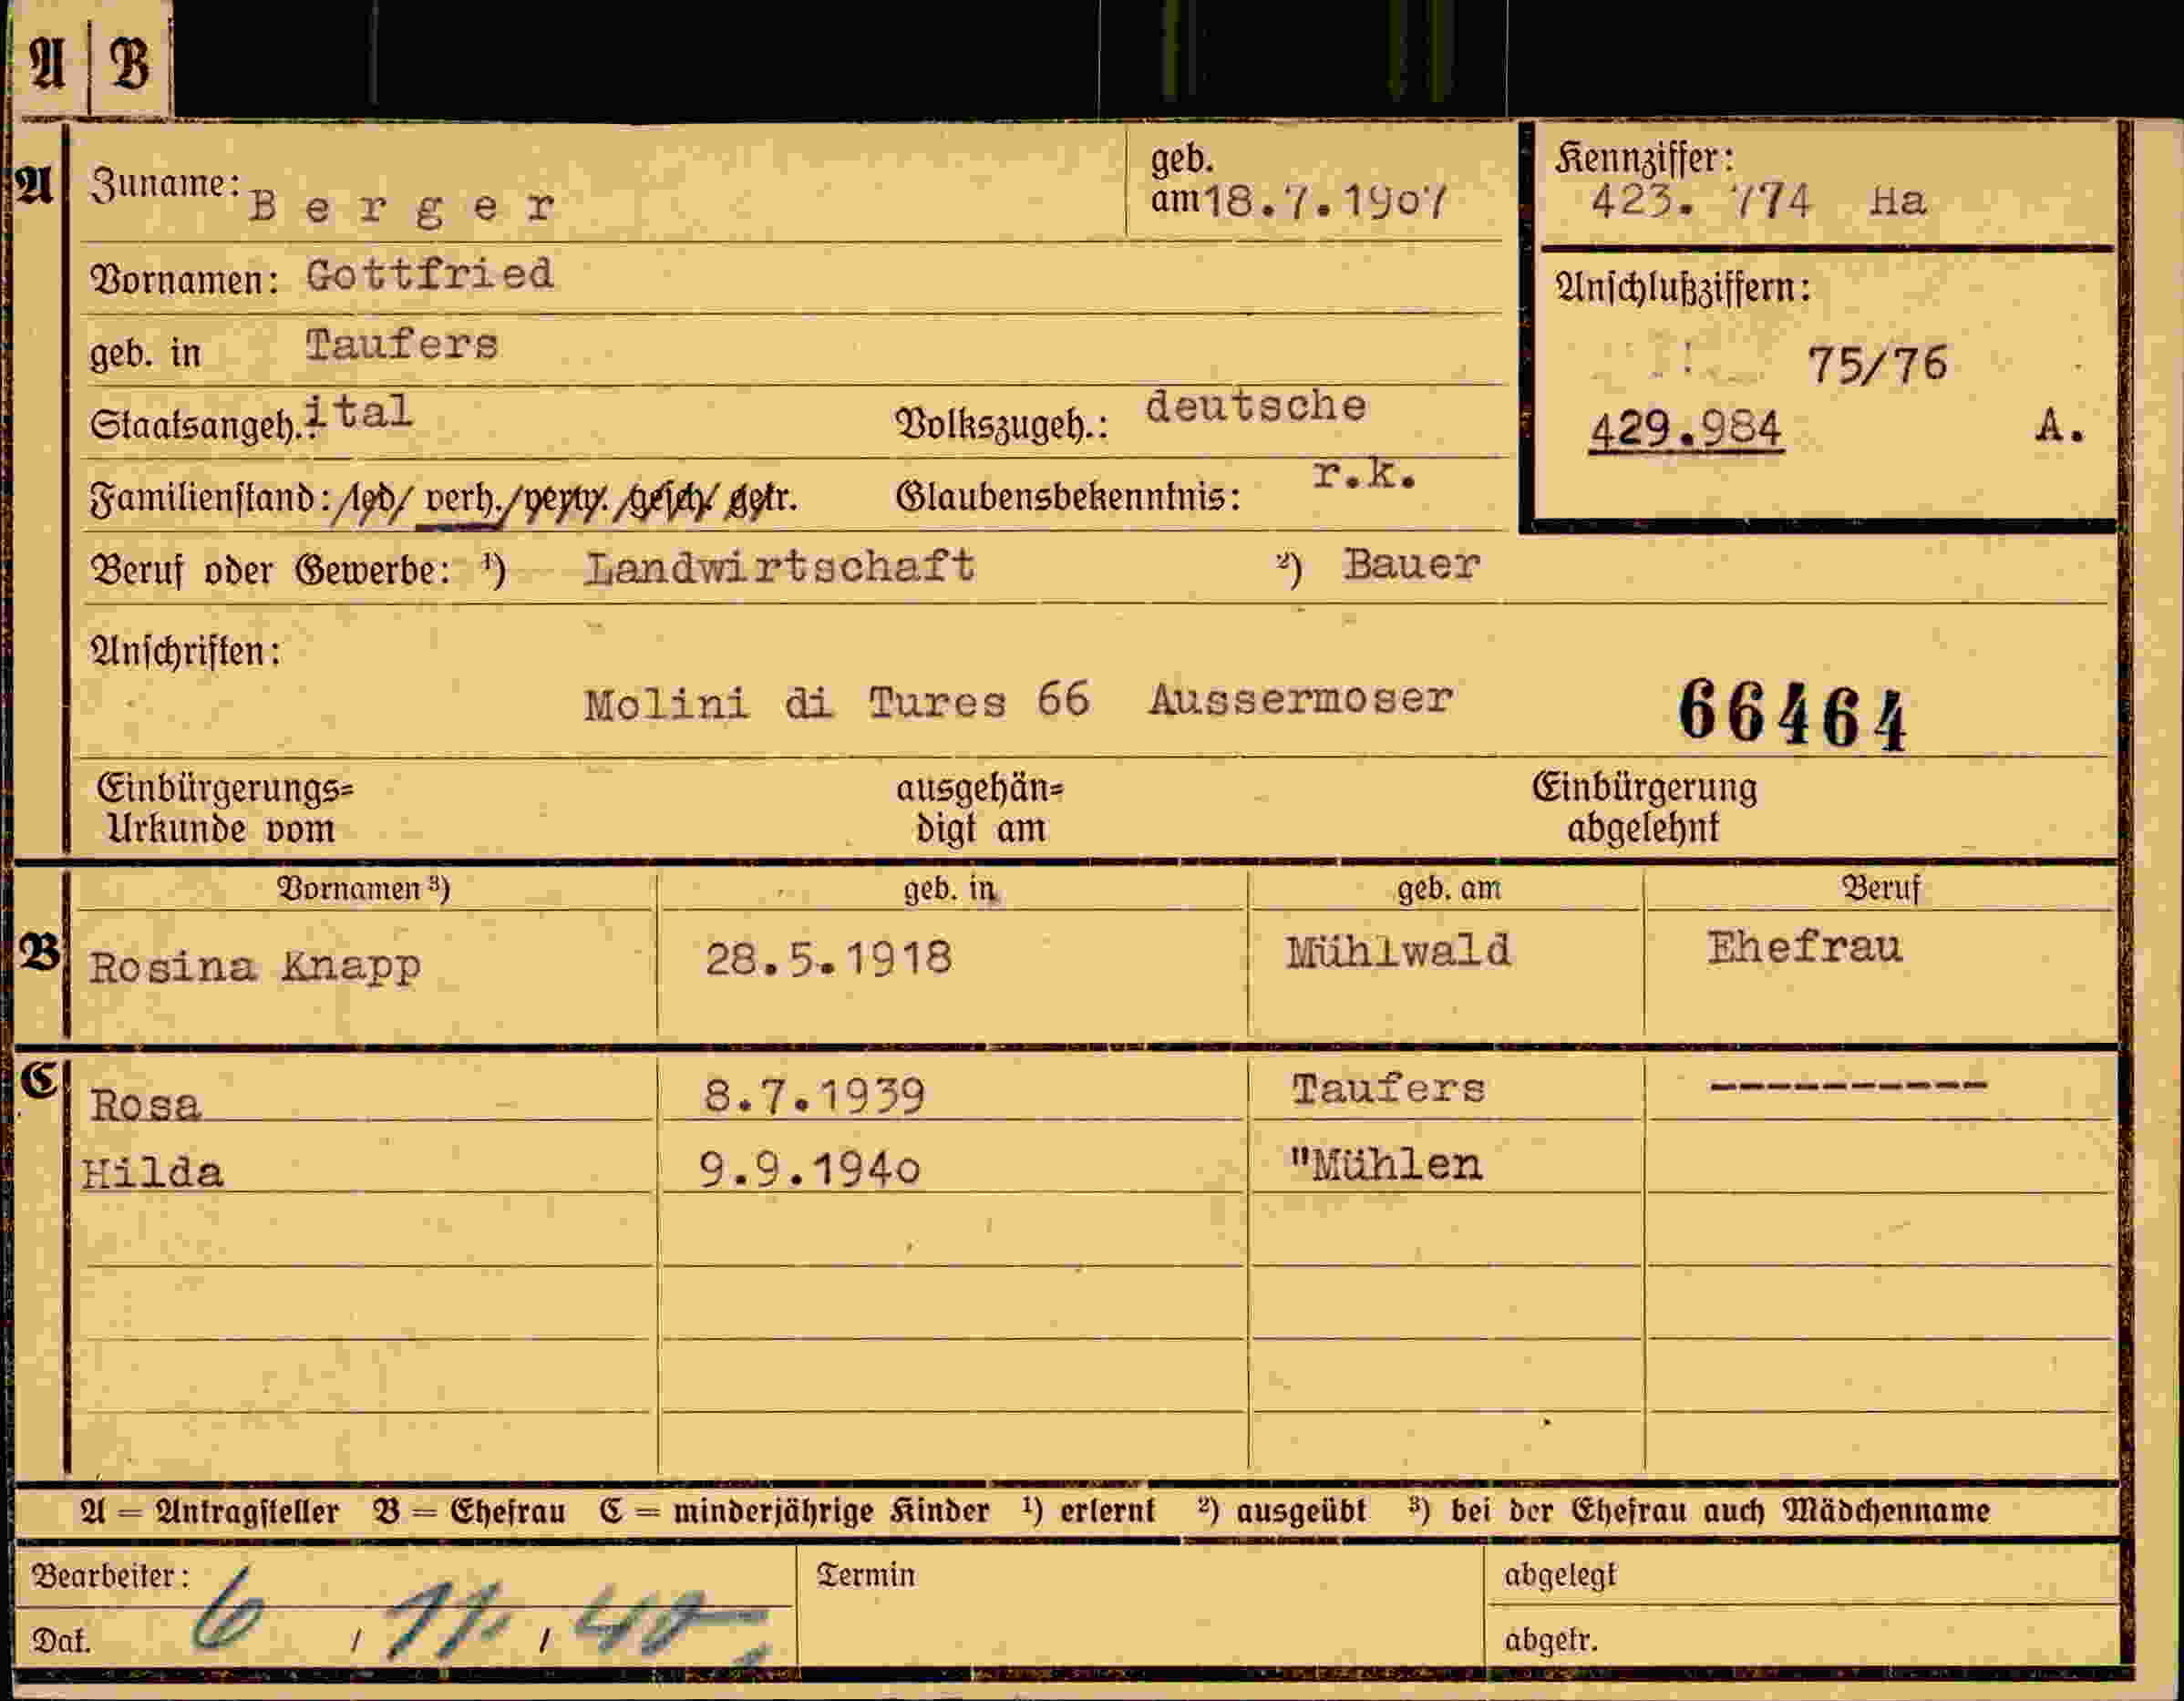 A | B
A Zuname: Berger geb. am 18.7.1907 Kennziffer: 423. 774 Ha
Vornamen: Gottfried
geb. in Taufers
Anschlußziffern:
75/76
Staatsangeh.: ital Volkszugeh.: deutsche
429.984 A.
Familienstand: /led/ verh./verw./gesch/ getr. Glaubensbekenntnis: r.k.
Beruf oder Gewerbe: ¹) Landwirtschaft ²) Bauer
Anschriften:
Molini di Tures 66 Aussermoser 66464
Einbürgerungs= ausgehän= Einbürgerung
Urkunde vom digt am abgelehnt
Vornamen ³) geb. in geb. am Beruf
B Rosina Knapp 28.5.1918 Mühlwald Ehefrau
C Rosa 8.7.1939 Taufers ----------
Hilda 9.9.1940 "Mühlen
A = Antragsteller B = Ehefrau C = minderjährige Kinder ¹) erlernt ²) ausgeübt ³) bei der Ehefrau auch Mädchenname
Bearbeiter: Termin abgelegt
Dat. 6 / 11. / 40 abgetr.